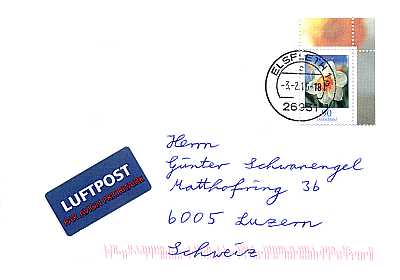 ELSFLETH 1
-3.-2.15-18
26931
90
LUFTPOST
PAR AVION PRIORITAIRE
Herrn
Günter Schwarengel
Matthofring 36
6005 Luzern
Schweiz